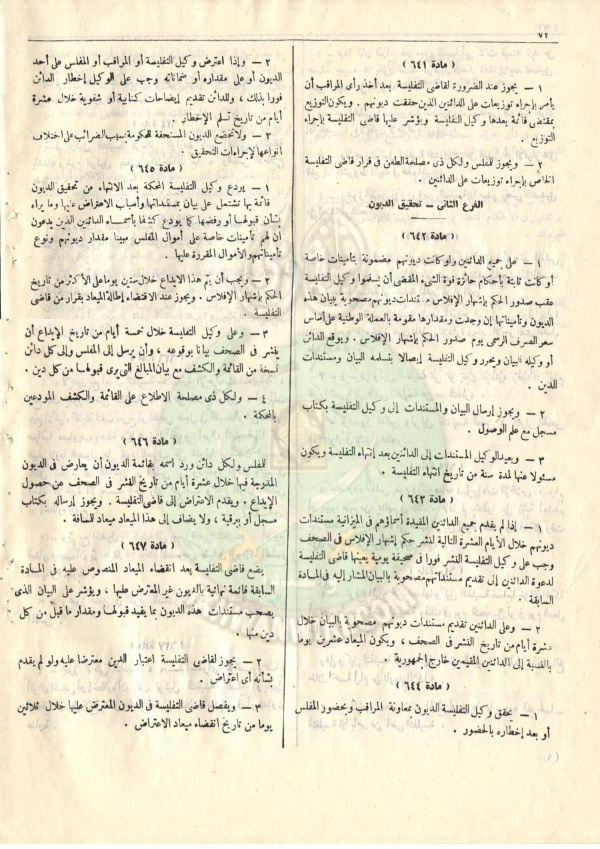 ٧٢
( مادة ٦٤١ )
١ — يجوز عند الضرورة لقاضى التفليسة بعد أخذ رأى المراقب أن
يأمر بإجراء توزيعات على الدائنين الذين حققت ديونهم . ويكون التوزيع
بمقتضى قائمة يعدها وكيل التفليسة ويؤشر عليها قاضى التفليسة بإجراء
التوزيع .
٢ — ويجوز للمفلس ولكل ذى مصلحة الطعن فى قرار قاضى التفليسة
الخاص بإجراء توزيعات على الدائنين .
الفرع الثانى — تحقيق الديون
( مادة ٦٤٢ )
١ — على جميع الدائنين ولو كانت ديونهم مضمونة بتأمينات خاصة
أو كانت ثابتة بأحكام حائزة قوة الشىء المقضى أن يسلموا وكيل التفليسة
عقب صدور الحكم بإشهار الإفلاس مستندات ديونهم مصحوبة ببيان هذه
الديون وتأميناتها إن وجدت ومقدارها مقومة بالعملة الوطنية على أساس
سعر الصرف الرسمى يوم صدور الحكم بإشهار الإفلاس . ويوقع الدائن
أو وكيله البيان ويحرر وكيل التفليسة إيصالا بتسلمه البيان ومستندات
الدين .
٢ — ويجوز إرسال البيان والمستندات إلى وكيل التفليسة بكتاب
مسجل مع علم الوصول .
٣ — ويعيد الوكيل المستندات إلى الدائنين بعد إنتهاء التفليسة ويكون
مسئولا عنها لمدة سنة من تاريخ انتهاء التفليسة .
( مادة ٦٤٣ )
١ — إذا لم يقدم جميع الدائنين المقيدة أسماؤهم فى الميزانية مستندات
ديونهم خلال الأيام العشرة التالية لنشر حكم إشهار الإفلاس فى الصحف
وجب على وكيل التفليسة النشر فورا فى صحيفة يومية يعينها قاضى التفليسة
لدعوة الدائنين إلى تقديم مستنداتهم مصحوبة بالبيان المشار إليه فى المادة
السابقة .
٢ — وعلى الدائنين تقديم مستندات ديونهم مصحوبة بالبيان خلال
عشرة أيام من تاريخ النشر فى الصحف ، ويكون الميعاد عشرين يوما
بالنسبة إلى الدائنين المقيمين خارج الجمهورية .
( مادة ٦٤٤ )
١ — يحقق وكيل التفليسة الديون بمعاونة المراقب وبحضور المفلس
أو بعد إخطاره بالحضور .
٢ — وإذا اعترض وكيل التفليسة أو المراقب أو المفلس على أحد
الديون أو على مقداره أو ضماناته وجب على الوكيل إخطار الدائن
فورا بذلك ، وللدائن تقديم إيضاحات كتابية أو شفوية خلال عشرة
أيام من تاريخ تسلم الإخطار .
٣ — ولا تخضع الديون المستحقة للحكومة بسبب الضرائب على اختلاف
أنواعها لإجراءات التحقيق .
( مادة ٦٤٥ )
١ — يودع وكيل التفليسة المحكمة بعد الانتهاء من تحقيق الديون
قائمة بها تشتمل على بيان بمستنداتها وأسباب الاعتراض عليها وما يراه
بشأن قبولها أو رفضها كما يودع كشفا بأسماء الدائنين الذين يدعون
أن لهم تأمينات خاصة على أموال المفلس مبينا مقدار ديونهم ونوع
تأميناتهم والأموال المقررة عليها .
٢ — ويجب أن يتم هذا الايداع خلال ستين يوما على الأكثر من تاريخ
الحكم بإشهار الإفلاس . ويجوز عند الاقتضاء إطالة الميعاد بقرار من قاضى
التفليسة .
٣ — وعلى وكيل التفليسة خلال خمسة أيام من تاريخ الإيداع أن
ينشر فى الصحف بيانا بوقوعه ، وأن يرسل إلى المفلس وإلى كل دائن
نسخة من القائمة والكشف مع بيان المبالغ التى يرى قبولها من كل دين .
٤ — ولكل ذى مصلحة الاطلاع على القائمة والكشف المودعين
بالمحكمة .
( مادة ٦٤٦ )
للمفلس ولكل دائن ورد اسمه بقائمة الديون أن يعارض فى الديون
المدرجة فيها خلال عشرة أيام من تاريخ النشر فى الصحف عن حصول
الإيداع . ويقدم الاعتراض إلى قاضى التفليسة . ويجوز إرساله بكتاب
مسجل أو ببرقية ، ولا يضاف إلى هذا الميعاد ميعاد للمسافة .
( مادة ٦٤٧ )
يضع قاضى التفليسة بعد انقضاء الميعاد المنصوص عليه فى المادة
السابقة قائمة نهائية بالديون غير المعترض عليها ، ويؤشر على البيان الذى
يصحب مستندات هذه الديون بما يفيد قبولها ومقدار ما قبل من كل
دين منها .
٢ — يجوز لقاضى التفليسة اعتبار الدين معترضا عليه ولو لم يقدم
بشأنه أى اعتراض .
٣ — ويفصل قاضى التفليسة فى الديون المعترض عليها خلال ثلاثين
يوما من تاريخ انقضاء ميعاد الاعتراض .